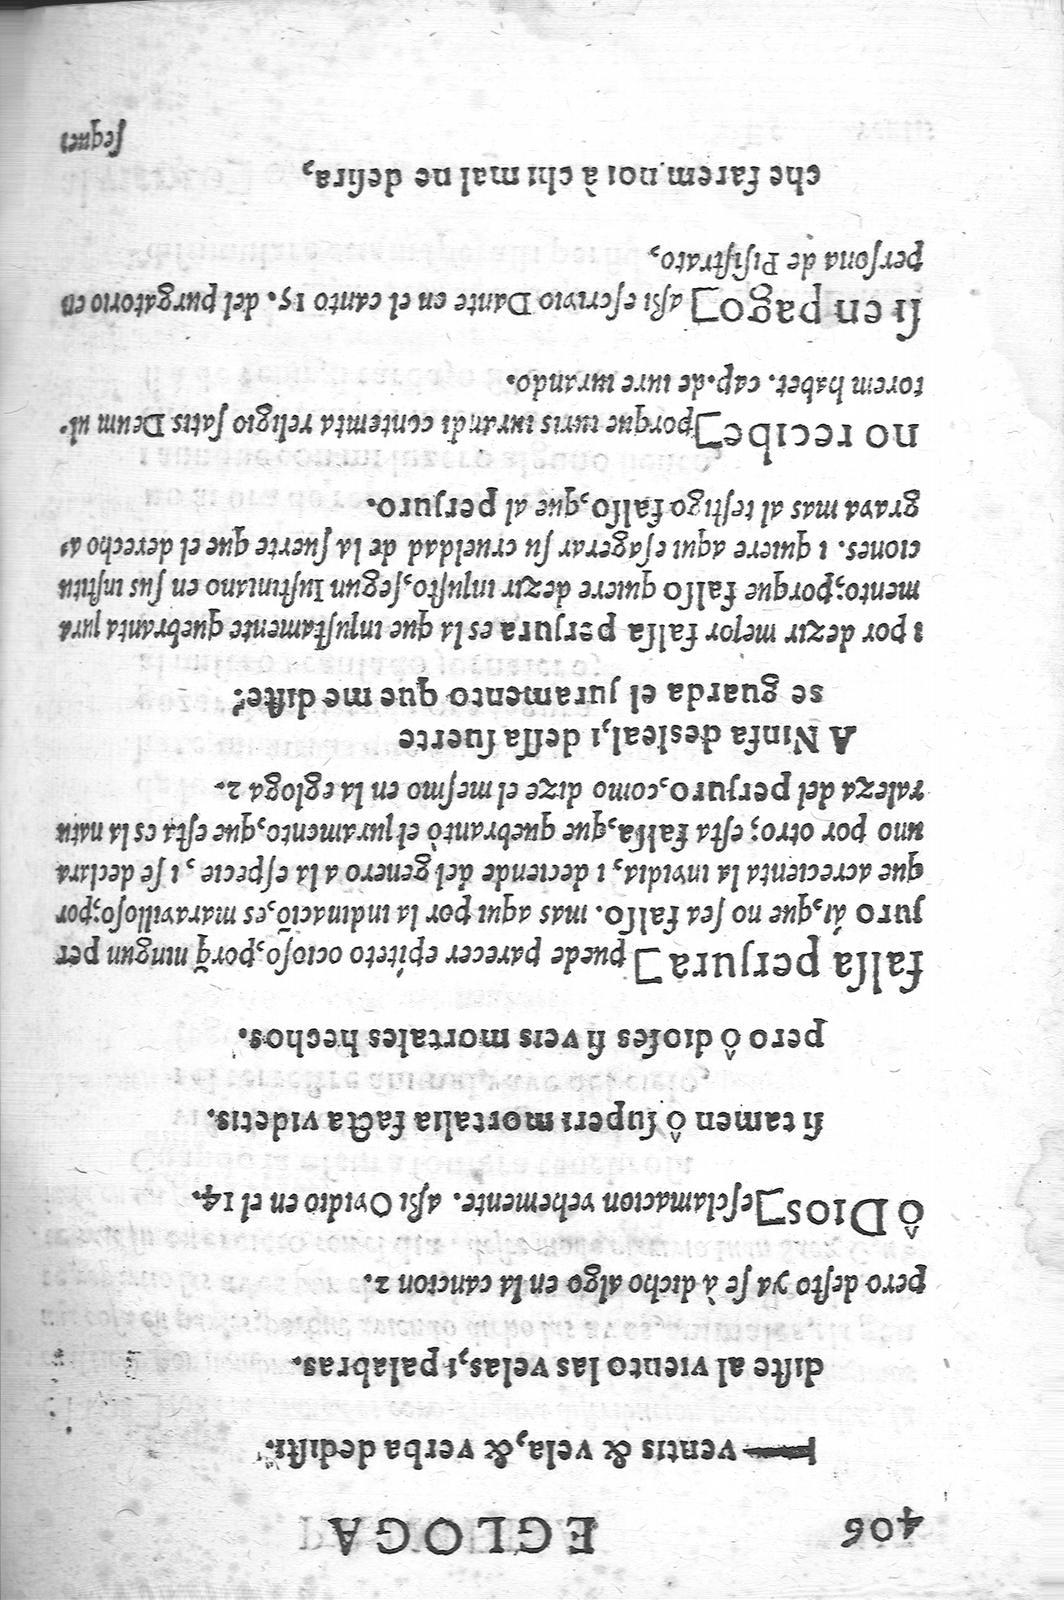 406 EGLOGA
ventis & vela, & verba dedisti.
diste al viento las velas, i palabras.
pero desto ya se à dicho algo en la cancion 2.
ô Dios] esclamacion vehemente. assi Ovidio en el 14.
si tamen ô superi mortalia facta videtis.
pero ô dioses si veis mortales hechos.
falsa perjura] puede parecer epíteto ocioso, porq̃ ningun per
juro ái, que no sea falso. mas aqui por la indinaciõ, es maravilloso; por
que acrecienta la invidia, i deciende del genero a la especie, i se declara
uno por otro; esta falsa, que quebrantò el juramento, que esta es la natu
raleza del perjuro, como dize el mesmo en la egloga 2.
A Ninfa desleal, i dessa suerte
se guarda el juramento que me diste?
i por dezir mejor falsa perjura es la que injustamente quebranta jura
mento; porque falso quiere dezir injusto, segun Iustiniano en sus institu
ciones. i quiere aqui esagerar su crueldad de la suerte que el derecho a-
grava mas al testigo falso, que al perjuro.
no recibe] porque iuris iurandi contemta religio satis Deum ul-
torem habet. cap. de iure iurando.
si en pago] assi escrivio Dante en el canto 15. del purgatorio en
persona de Pisistrato,
che farem noi à chi mal ne desira,
seque